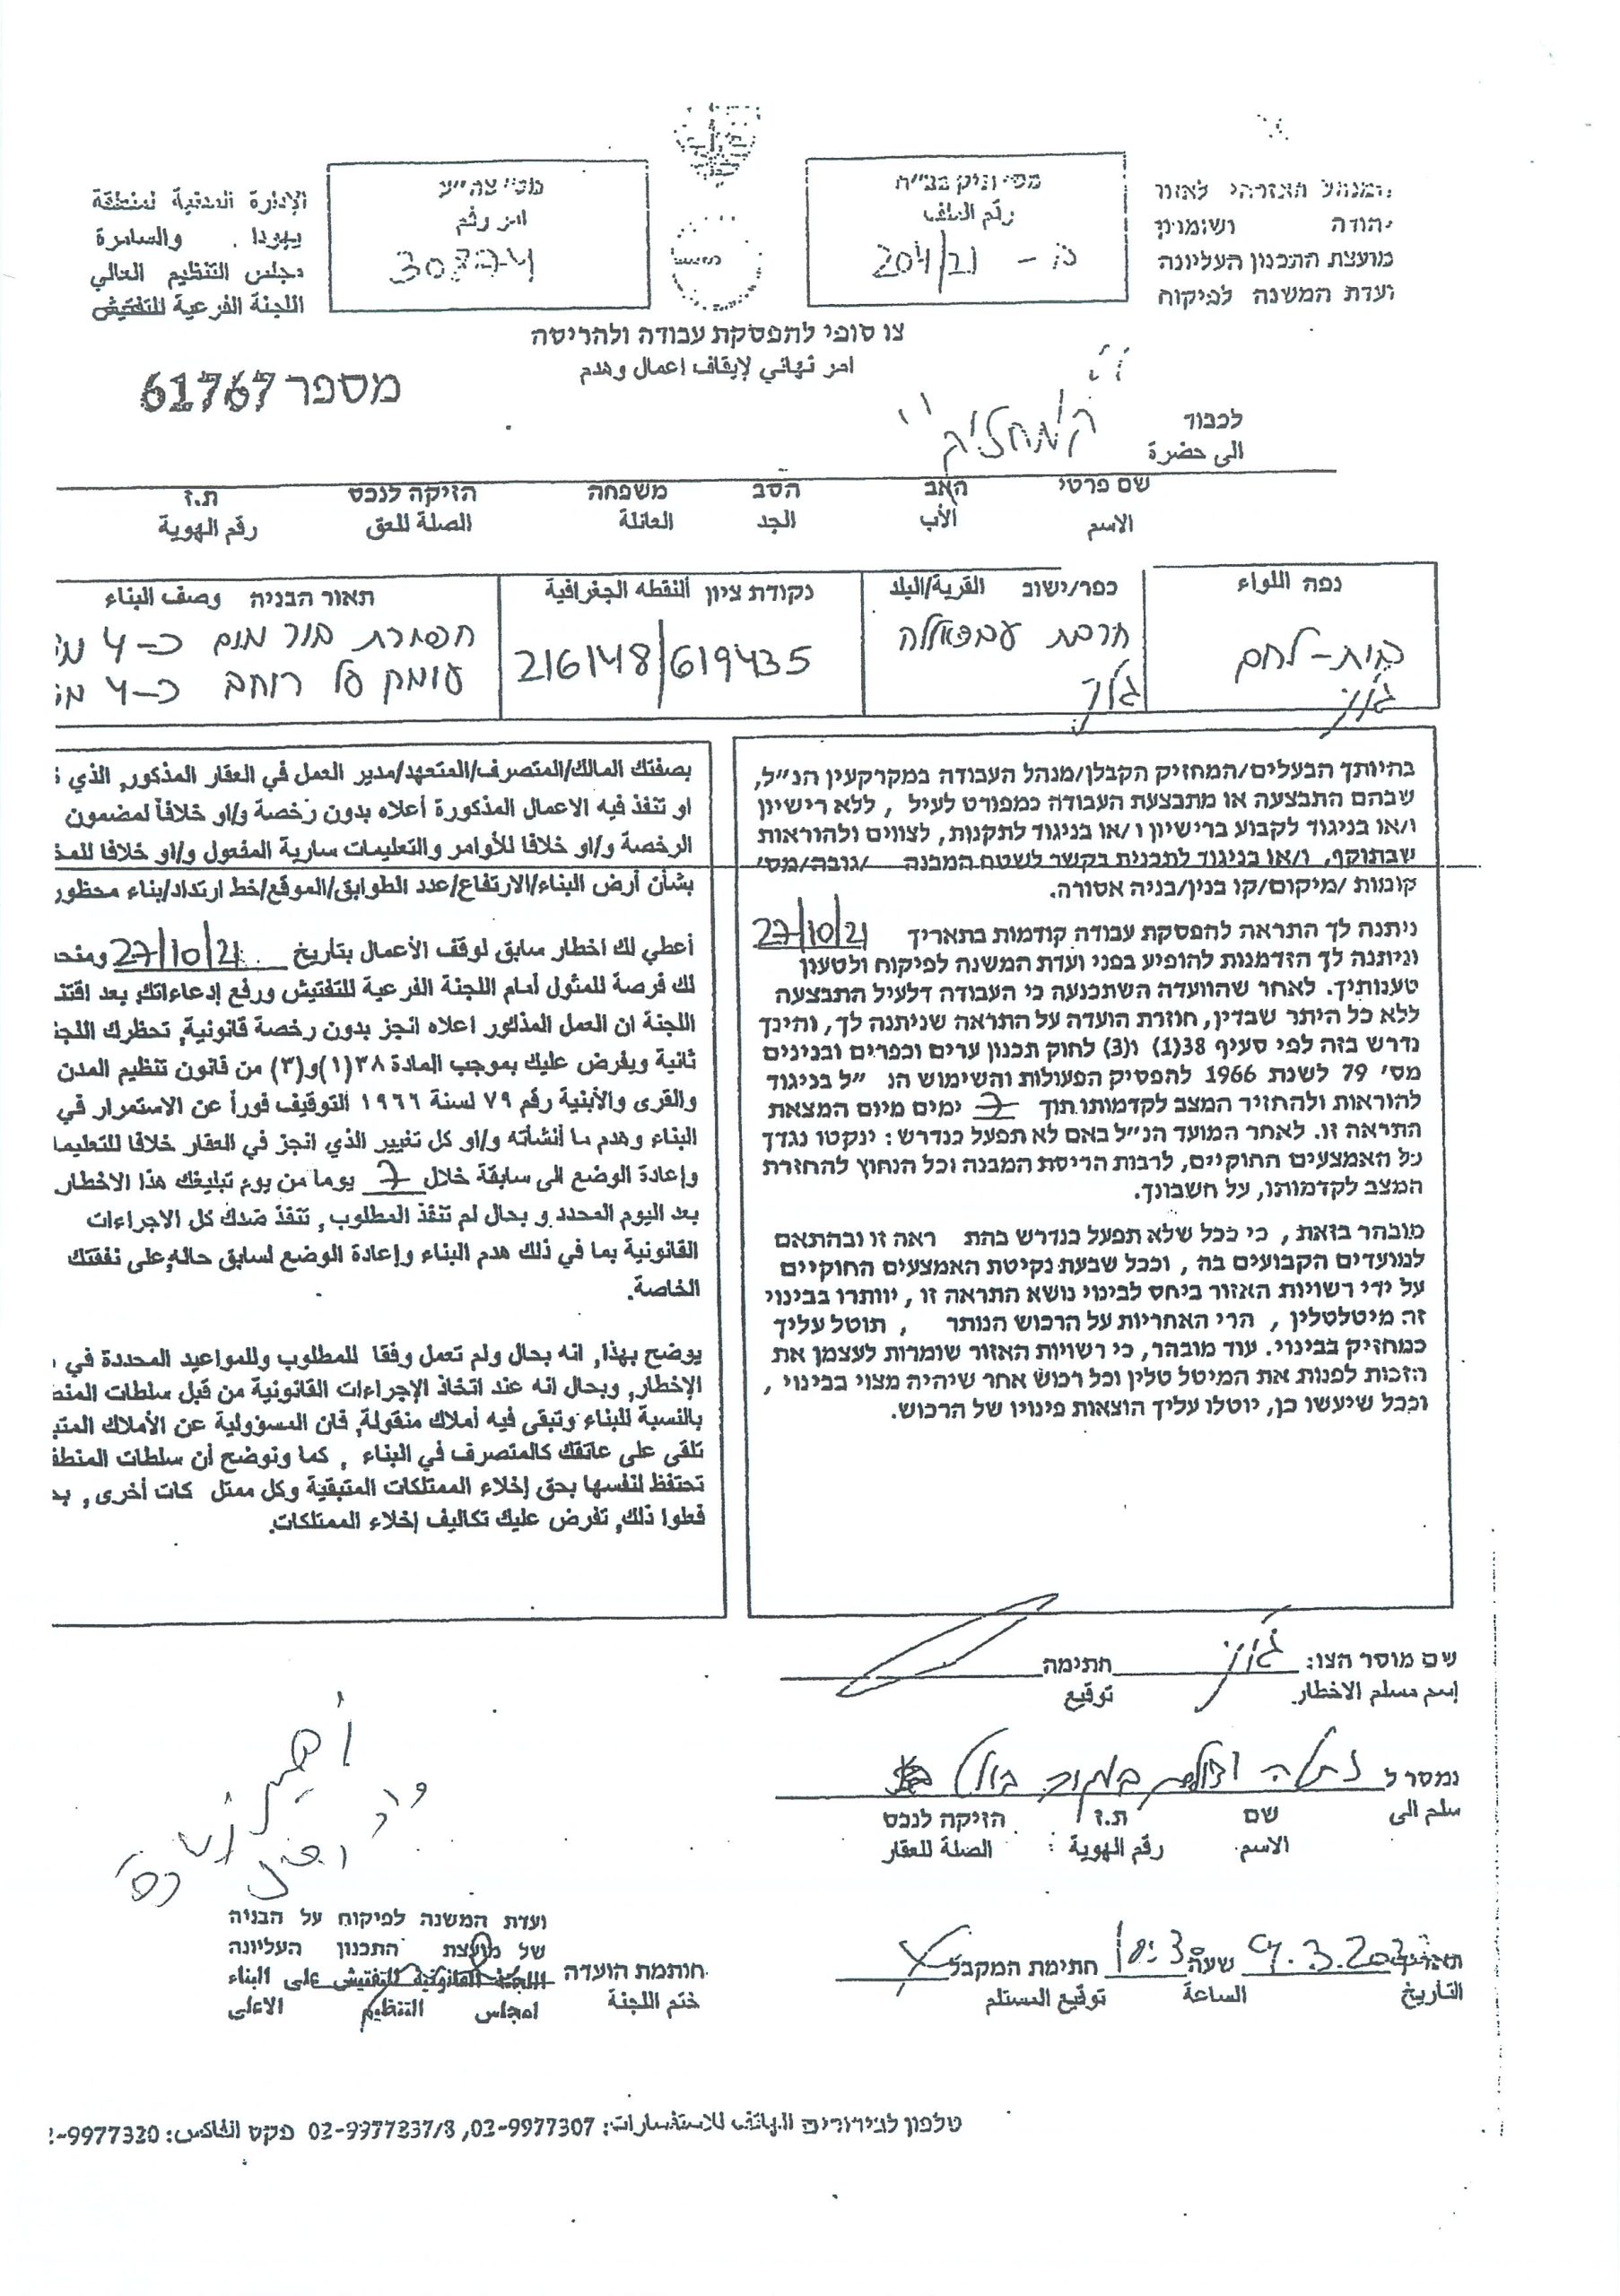 המנהל האזרחי לאזור
יהודה ושומרון
מועצת התכנון העליונה
ועדת המשנה לפיקוח
מס׳ תיק בב״ח
رقم الملف
ב - 204/21
מס׳ צה״ע
امر رقم
الإدارة المدنية لمنطقة
يهودا والسامرة
مجلس التنظيم العالي
اللجنة الفرعية للتفتيش
צו סופי להפסקת עבודה ולהריסה
امر نهائي لإيقاف اعمال وهدم
מספר 61767
לכבוד
"המחזיק"
الى حضرة
שם פרטי האב הסב משפחה הזיקה לנכס ת.ז
الاسم الأب الجد العائلة الصلة للعق رقم الهوية
נפה اللواء
בית-לחם
כפר/ישוב القرية/البلد
חרבת
נקודת ציון النقطه الجغرافية
216148/619435
תאור הבניה وصف البناء
חפירת בור מים כ-4 מ׳
עומק על רוחב כ-4 מ׳
בהיותך הבעלים/המחזיק הקבלן/מנהל העבודה במקרקעין הנ״ל,
שבהם התבצעה או מתבצעת העבודה כמפורט לעיל , ללא רישיון
ו/או בניגוד לקבוע ברישיון ו /או בניגוד לתקנות, לצווים ולהוראות
שבתוקף, ו/או בניגוד לתכנית בקשר לשטח המבנה /גובה/מס׳
קומות /מיקום/קו בנין/בניה אסורה.
ניתנה לך התראה להפסקת עבודה קודמות בתאריך 27/10/21
וניתנה לך הזדמנות להופיע בפני ועדת המשנה לפיקוח ולטעון
טענותיך. לאחר שהוועדה השתכנעה כי העבודה דלעיל התבצעה
ללא כל היתר שבדין, חוזרת הועדה על התראה שניתנה לך, והינך
נדרש בזה לפי סעיף 38(1) ו(3) לחוק תכנון ערים וכפרים ובנינים
מס׳ 79 לשנת 1966 להפסיק הפעולות והשימוש הנ ״ל בניגוד
להוראות ולהחזיר המצב לקדמותו תוך 7 ימים מיום המצאת
התראה זו. לאחר המועד הנ״ל באם לא תפעל כנדרש : ינקטו נגדך
כל האמצעים החוקיים, לרבות הריסת המבנה וכל הנחוץ להחזרת
המצב לקדמותו, על חשבונך.
מובהר בזאת , כי ככל שלא תפעל כנדרש בהת ראה זו ובהתאם
למועדים הקבועים בה , וככל שבעת נקיטת האמצעים החוקיים
על ידי רשויות האזור ביחס לבינוי נושא התראה זו , יוותרו בבינוי
זה מיטלטלין , הרי האחריות על הרכוש הנותר , תוטל עליך
כמחזיק בבינוי. עוד מובהר, כי רשויות האזור שומרות לעצמן את
הזכות לפנות את המיטל טלין וכל רכוש אחר שיהיה מצוי בבינוי ,
וככל שיעשו כן, יוטלו עליך הוצאות פינויו של הרכוש.
بصفتك المالك/المتصرف/المتعهد/مدير العمل في العقار المذكور, الذي
او تنفذ فيه الاعمال المذكورة أعلاه بدون رخصة و/او خلافاً لمضمون
الرخصة و/او خلافا للأوامر والتعليمات سارية المفعول و/او خلافا للمذ
بشأن أرض البناء/الارتفاع/عدد الطوابق/الموقع/خط ارتداد/بناء محظور
أعطي لك اخطار سابق لوقف الأعمال بتاريخ 27/10/21 ومنحت
لك فرصة للمثول أمام اللجنة الفرعية للتفتيش ورفع إدعاءاتك, بعد اقتنـ
اللجنة ان العمل المذكور اعلاه انجز بدون رخصة قانونية, تحظرك اللجنـ
ثانية ويفرض عليك بموجب المادة ٣٨(١)و(٣) من قانون تنظيم المدن
والقرى والأبنية رقم ٧٩ لسنة ١٩٦٦ التوقيف فوراً عن الاستمرار في
البناء وهدم ما أنشأته و/او كل تغيير الذي انجز في العقار خلافا للتعليما
وإعادة الوضع الى سابقة خلال 7 يوما من يوم تبليغك هذا الاخطار.
بعد اليوم المحدد و بحال لم تنفذ المطلوب, تتفذ ضدك كل الاجراءات
القانونية بما في ذلك هدم البناء وإعادة الوضع لسابق حاله, على نفقتك
الخاصة.
يوضح بهذا, انه بحال ولم تعمل وفقا للمطلوب وللمواعيد المحددة في
الإخطار, وبحال انه عند اتخاذ الإجراءات القانونية من قبل سلطات المنط
بالنسبة للبناء وتبقى فيه أملاك منقولة, فان المسؤولية عن الأملاك المتبـ
تلقى على عاتقك كالمتصرف في البناء , كما ونوضح أن سلطات المنطقـ
تحتفظ لنفسها بحق إخلاء الممتلكات المتبقية وكل ممتل كات أخرى, بحـ
فعلوا ذلك, تفرض عليك تكاليف إخلاء الممتلكات.
שם מוסר הצו: חתימה
إسم مسلم الاخطار توقيع
נמסר ל
سلم الى
שם ת.ז הזיקה לנכס
الاسم رقم الهوية : الصلة للعقار
תאריך שעה 10:30 חתימת המקבל
التاريخ الساعة توقيع المستلم
חותמת הועדה
ختم اللجنة
ועדת המשנה לפיקוח על הבניה
של מועצת התכנון העליונה
اللجنة القانونية للتفتيش على البناء
لمجلس التنظيم الاعلى
טלפון לבירורים الهاتف للاستفسارات: 02-9977307, 02-9977337/8 פקס الفاكس: 2-9977320